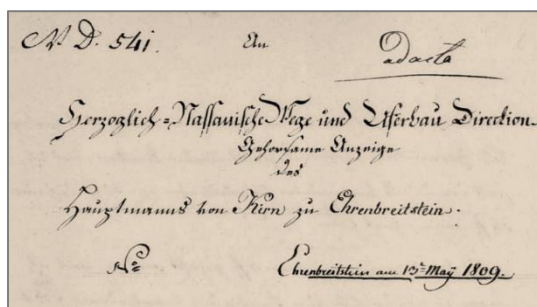 N D. 541. An ad acta
Herzoglich-Nassauische Wege und Uferbau Direction.
Gehorsame Anzeige
des
Hauptmanns von Kirn zu Ehrenbreitstein.
No
Ehrenbreitstein am 13t May 1809.